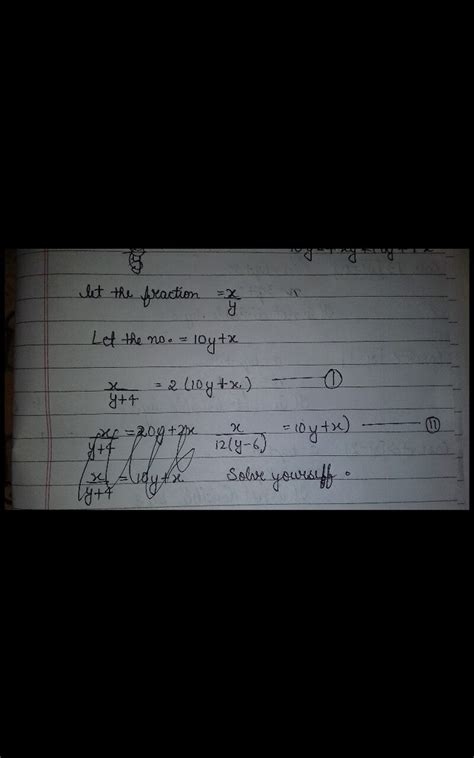 let the fraction = x/y
Let the no. = 10y+x
x/y+4 = 2(10y+x) — I
x/y+4 = 20y+2x x/12(y-6) = 10y+x) — II
x/y+4 = 10y+x Solve yourself.